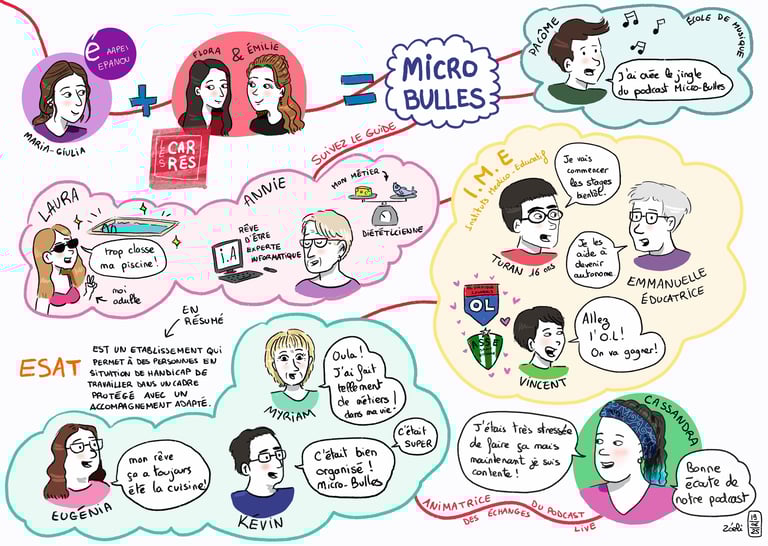 é
AAPEI
EPANOU
MARIA-GIULIA
+
FLORA & ÉMILIE
LES
CAR
RÉS
=
MICRO
BULLES
PACÔME
ÉCOLE DE MUSIQUE
J'ai créé le jingle
du podcast Micro-Bulles
SUIVEZ LE GUIDE
LAURA
trop classe
ma piscine!
moi
adulte
ANNIE
MON MÉTIER
DIÉTÉTICIENNE
i.A
RÊVE
D'ÊTRE
EXPERTE
INFORMATIQUE
I.M.E
Instituts Médico-Educatif
Je vais
commencer
les stages
bientôt!
TURAN 16 ans
Je les
aide à
devenir
autonome
EMMANUELLE
ÉDUCATRICE
OL
ASSE
Allez
l'O.L!
On va gagner!
VINCENT
EN
RÉSUMÉ
ESAT
EST UN ETABLISSEMENT QUI
PERMET À DES PERSONNES EN
SITUATION DE HANDICAP DE
TRAVAILLER DANS UN CADRE
PROTÉGÉ AVEC UN
ACCOMPAGNEMENT ADAPTÉ.
MYRIAM
Oula!
J'ai fait
tellement
de métiers
dans ma vie!
EUGÉNIA
mon rêve
ça a toujours
été la cuisine!
KÉVIN
C'était bien
organisé!
Micro-Bulles
C'était
SUPER
CASSANDRA
J'étais très stressée
de faire ça mais
maintenant je suis
contente!
Bonne
écoute de
notre podcast
ANIMATRICE DU PODCAST
DES ÉCHANGES LIVE